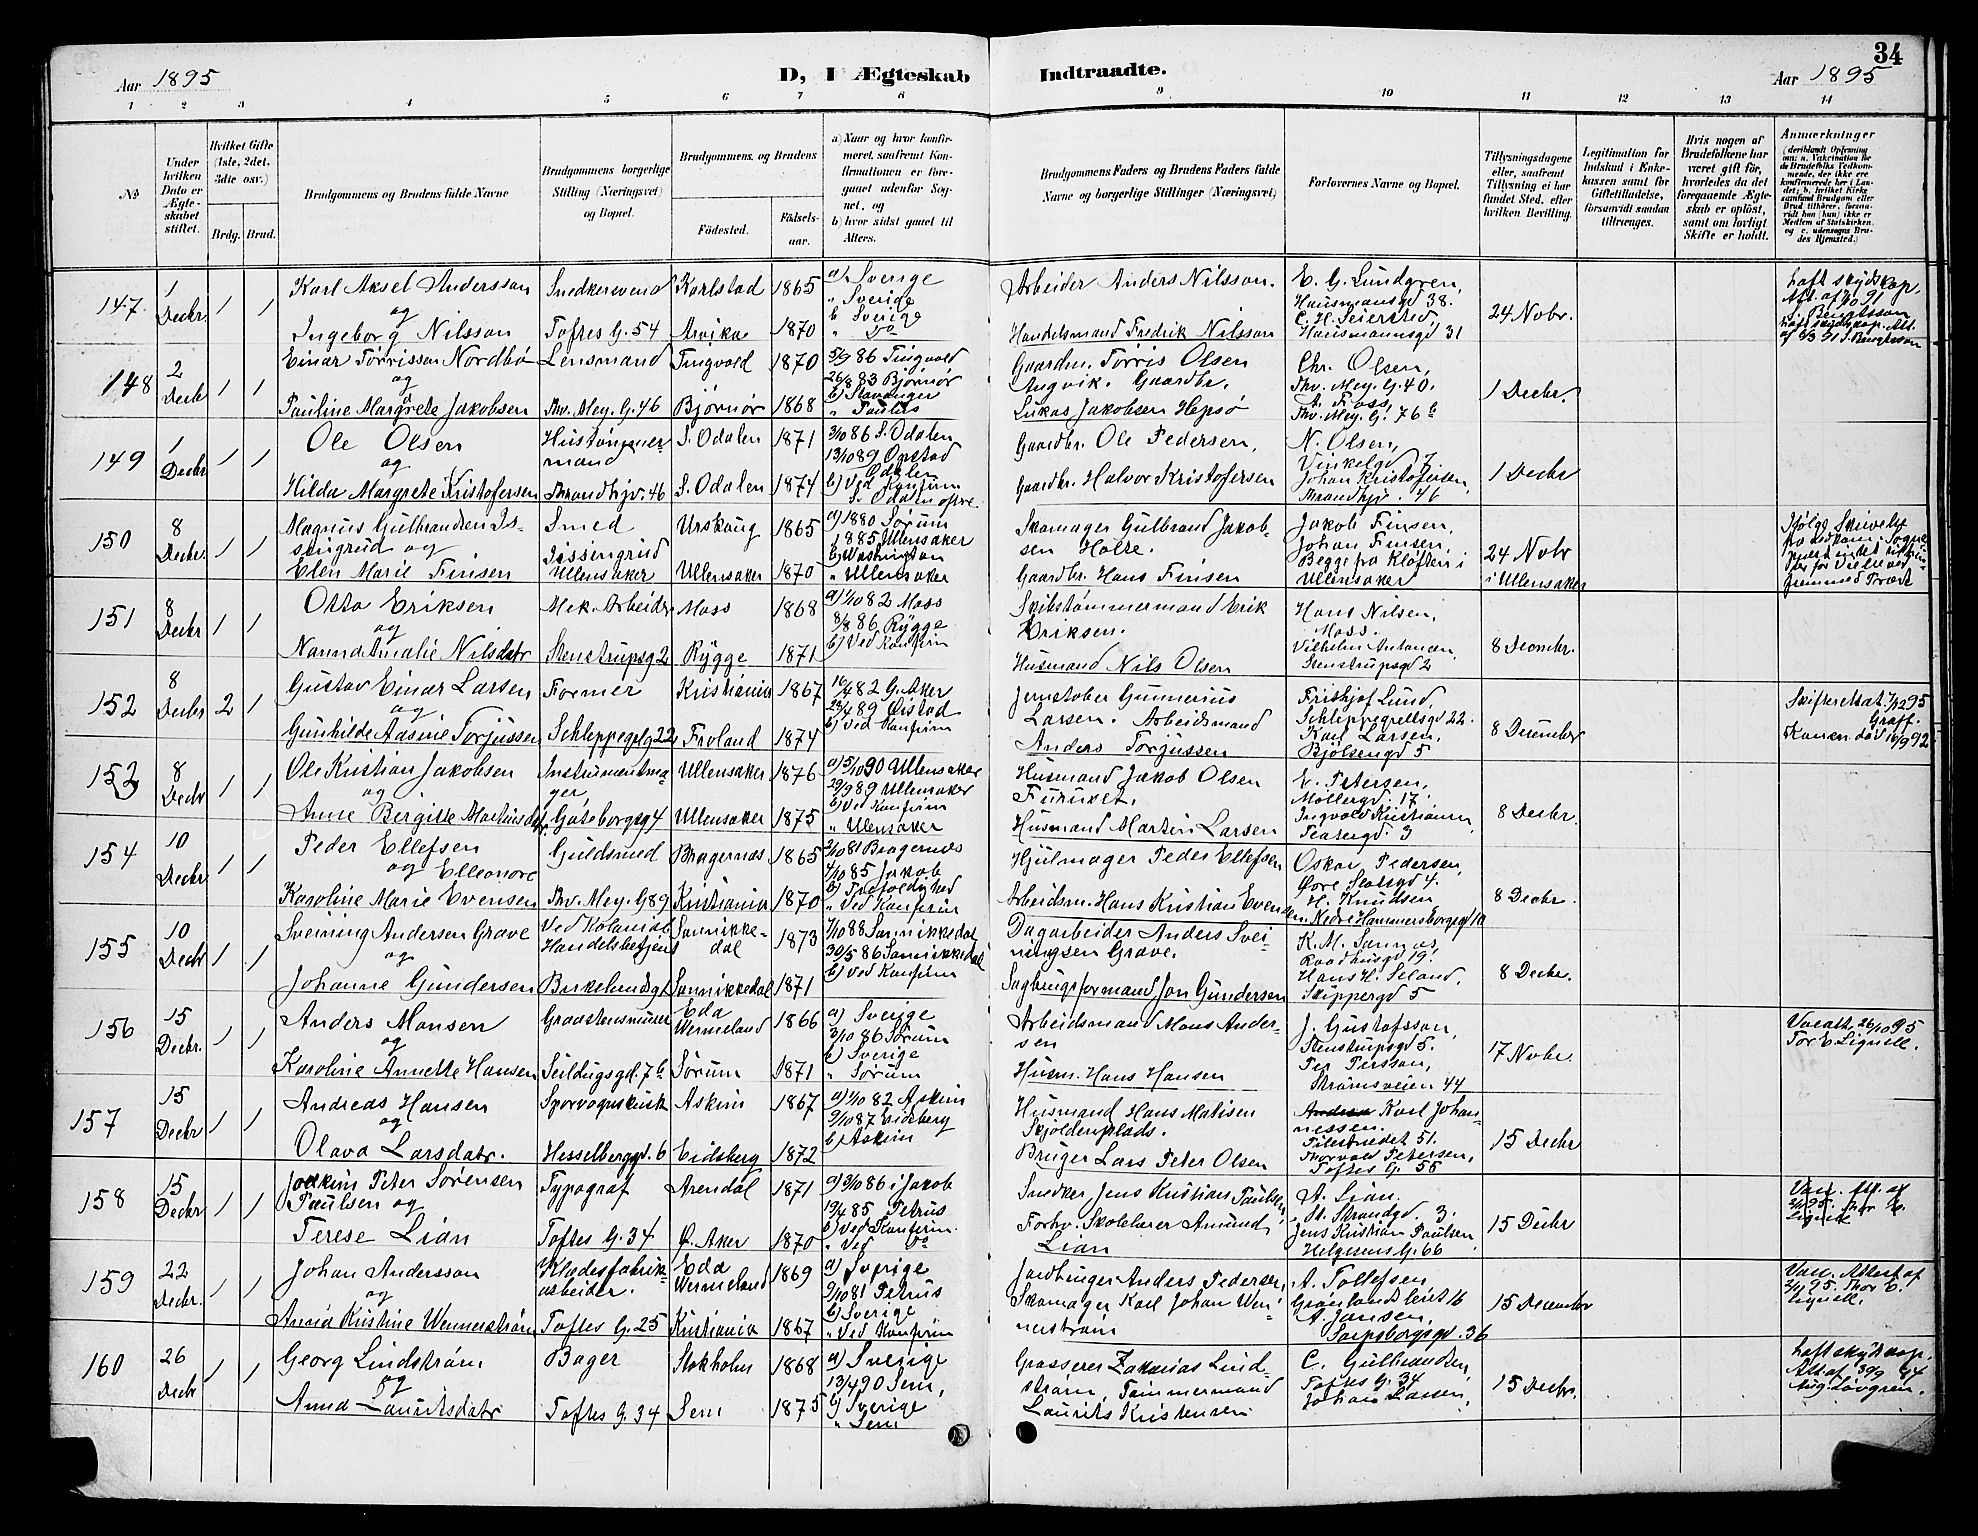 Aar 1895
D, I Ægteskab
Indtraadte.
34
Aar 1895
1 2 3 4 5 6 7 8 9 10 11 12 13 14
№
Under hvilken Dato er Ægteskabet stiftet.
Hvilket Gifte (1ste, 2det, 3die osv.)
Brdg. Brud.
Brudgommens og Brudens fulde Navne
Brudgommens borgerlige Stilling (Næringsvei) og Bopæl.
Brudgommens og Brudens
Födested.
Födselsaar.
a) Naar og hvor konfirmeret, saafremt Konfirmationen er foregaaet udenfor Sognet, og
b) hvor sidst gaaet til Alters.
Brudgommens Faders og Brudens Faders fulde Navne og borgerlige Stillinger (Næringsvei).
Forlovernes Navne og Bopæl.
Tillysningsdagene eller, saafremt Tillysning ei har fundet Sted, efter hvilken Bevilling.
Legitimation for Indskud i Enkekassen samt for Giftetilladelse, forsaavidt saadan tiltrænges.
Hvis nogen af Brudefolkene har været gift för, hvorledes da det foregaaende Ægteskab er oplöst, samt om lovligt Skifte er holdt.
Anmærkninger
147 1 Decbr. 1 1
Karl Aksel Andersson
og
Ingeborg Nilsson
Snedkersvend
Toftes G. 54
Karlstad 1865
Arvika 1870
a) Sverige
" Sverige
b) Sverige
" do
Arbeider Anders Nilsson.
Handelsmand Fredrik Nilsson
E. G. Lundgren,
Hausmansgd 38.
C. H. Seiersted
Hausmannsgd 31
24 Nobr.
148 2 Decb 1 1
Einar Torrisson Nordbø
og
Pauline Margrete Jakobsen
Lensmand
Thv. Mey. G. 46
Tingvold 1870
Bjørnør 1868
5/9 86 Tingvold
26/8 83 Bjørnør
b) Stavanger
" Paulus
Gaardm. Torris Olsen
Angvik. Gaardbr.
Lukas Jakobsen Hepsø
Chr. Olsen,
Thv. Mey. G. 40.
A. Foss,
Thv. Mey. G. 76 b
1 Decbr.
149 1 Decbr 1 1
Ole Olsen
og
Hilda Margrete Kristofersen
Hustømmermand
Strandhjv. 46
S. Odalen 1871
S. Odalen 1874
3/10 86 S. Odalen
13/10 89 Opstad
Odalen
b) Ved Konfirm
Gaardbr. Ole Pedersen,
Gaardbr. Halvor Kristofersen
N. Olsen,
Vinkelgd 7
Johan Kristofersen,
46
1 Decbr
150 8 Decbr. 1 1
Magnus Gulbrandsen Issingrud og
Elen Marie Finsen
Smed
Issingrud
Ullensaker
Urskoug 1865
Ullensaker 1870
a) 1880 Sørum
1885 Ullensaker
b) Washington
" Ullensaker
Skomager Gulbrand Jakobsen Holte.
Gaardbr. Hans Finsen
Jakob Finsen,
Johan Finsen,
Begge fra Kløften i
Ullensaker
24 Nobr
i Ullensaker
151 8 Decbr 1 1
Otto Eriksen
og
Nanna Amalie Nilsdatr
Mek. Arbeider
Stenstrupsg 2
Moss 1868
Rygge 1871
a) 1/10 82 Moss
8/8 86 Rygge
b) Ved Konfirm
Skibstømmermand Erik
Eriksen.
Husmand Nils Olsen
Hans Nilsen,
Moss.
Vilhelm Antonsen,
Stenstrupsgd 2
8 Decmbr.
152 8 Decbr 2 1
Gustav Einar Larsen
og
Gunhilde Aasine Torjussen
Former
Schleppegrlg 22
Kristiania 1867
Froland 1874
16/4 82 G. Aker
23/4 89 Øistad
b) Ved Konfirm
Jernstøber Gunnerius
Larsen. Arbeidsmand
Anders Torjussen
Frithjof Lund,
Schleppegrellsgd 22.
Karl Larsen,
Bjølsengd 5
8 December
Skifteattest 7/12 95
Graff.
Konen död 16/9 92
153 8 Decbr 1 1
Ole Kristian Jakobsen
og
Anne Birgitte Martinsdatr
Instrumentmager
Gøteborgsg 4
Ullensaker 1876
Ullensaker 1875
a) 5/10 90 Ullensaker
29/9 89 Ullensaker
b) Ved Konfirm
" Ullensaker
Husmand Jakob Olsen
Husmand Martin Larsen
E. Petersen,
Møllergd. 17
Ingvold Kristiansen,
Teatergd 3
8 Decbr.
154 10 Decbr 1 1
Peder Ellefsen
og Elleonore
Karoline Marie Evensen
Guldsmed
Thv. Mey. G. 89
Bragernæs 1865
Kristiania 1870
2/10 81 Bragernæs
4/10 85 Jakob
b) Trefoldighed
" Ved Konfirm
Hjulmager Peder Ellefsen
Arbeidsm. Hans Kristian Evensen
Oskar Pedersen,
Øvre Slotsgd 4.
H. Knudsen
Nedre Hammersborgsgd 10
8 Decbr.
155 10 Decbr 1 1
Sveining Andersen Grave
og
Johanne Gundersen
Ved Kolonial
Handelsbetjent
Birkelundsg
Sannikkedal 1873
Sannikkedal 1871
7/10 88 Sannikkedal
30/5 86 Sannikkedal
b) Ved Konfirm
Dagarbeider Anders Sveiningsen Grave.
Sagbrugsformand Jon Gundersen
K. M. Sannæs,
Raadhusgd 19.
Hans H. Seland,
Skippergd 5
8 Decbr.
156 15 Decbr. 1 1
Anders Monsen
og
Karoline Annette Hansen
Graastensmurer
Seildugsgd. 7 b
Eda
Wermeland 1866
Sørum 1871
a) Sverige
3/10 86 Sørum
b) Sverige
" Sørum
Arbeidsmand Mons Andersen
Husm. Hans Hansen
J. Gustafsson,
Stenstrupsgd 5.
Per Persson,
Strømsveien 44
17 Nobr.
Vacatt. 26/10 95
Tor E. Lignell.
157 15 Decbr 1 1
Andreas Hansen
og
Olava Larsdatr.
Sporvognskusk
Hesselberggd. 6
Askim 1867
Eidsberg 1872
a) 1/10 82 Askim
9/10 87 Eidsberg
b) Askim
Husmand Hans Matisen
Skjoldenplads.
Bruger Lars Peter Olsen
Andreas Karl Johannessen.
Pilestrædet 51.
Thorvald Petersen,
Toftes G. 55
15 Decbr
158 15 Decbr 1 1
Joakim Peter Sørensen
Paulsen og
Terese Lian
Typograf
Toftes G. 34
Arendal 1871
Ø. Aker 1870
a) 3/10 86 i Jakob
19/4 85 Petrus
b) Ved Konfirm.
" Ved do
Snedker Jens Kristian Paulsen,
Forhv. Skolelærer Amund
Lian
A. Lian.
St. Strandgd. 3.
Jens Kristian Paulsen,
Helgesens G. 66
15 Decbr
159 22 Decbr. 1 1
Johan Andersson
og
Anna Kristine Wennerstrøm
Klædesfabrikarbeider.
Toftes G. 25
Eda
Wermeland 1869
Kristiania 1867
a) Sverige
9/10 81 Petrus
b) Sverige
" Ved Konfirm
Jordbruger Anders Pedersen,
Skomager Karl Johan Wennerstrøm
A. Tollefsen,
Grønlandsleiret 16
A. Jansen,
Sarpsborgsgd. 36
15 December
Vacc. Attest af
2/11 95. Thor E.
Lignell.
160 26 Decbr 1 1
Georg Lindstrøm
og
Anna Lauritsdatr
Bager
Toftes G. 34
Stokholm 1868
Sem 1875
a) Sverige
13/4 90 Sem,
b) Sverige
" Sem
Grosserer Zakarias Lindstrøm, Tømmermand
Laurits Kristensen
C. Gulbrandsen,
Toftes G. 34
Johan Larsen,
15 Decbr.
haft skydskop.
Aug. Løvgren.